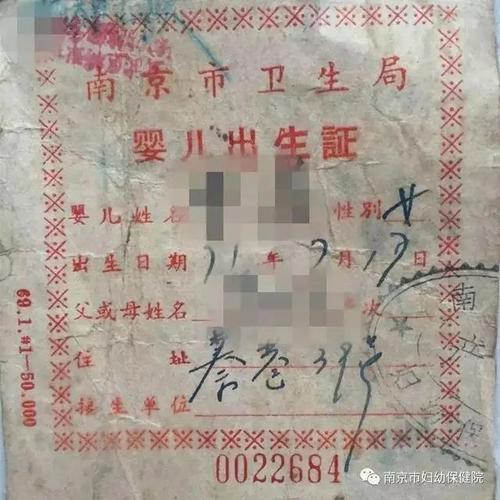 南京市卫生局
婴儿出生証
婴儿姓名 性別 女
出生日期 71年7月19日
父或母姓名 次
住址 39号
接生单位
69.1.#1—50.000
0022684
南京市妇幼保健院